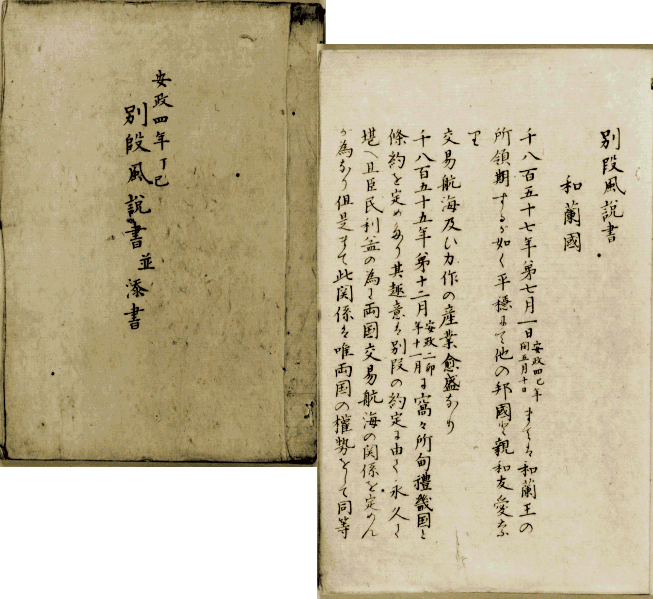 安政四年丁巳
別段風説書並添書
別段風説書
和蘭國
千八百五十七年第七月一日安政四巳年閏五月十日まてハ和蘭王の
所領期するか如く平穏にて他の邦國と親和友愛な
り
交易航海及ひ力作の産業愈盛なり
千八百五十五年第十二月安政二卯年十一月に窩々所甸禮畿国と
條約を定めあり其趣意ハ別段の約定に由て永久に
堪へ且臣民利益の為に両国交易航海の関係を定めん
か為なり但是まて此関係ハ唯両国の權勢をして同等